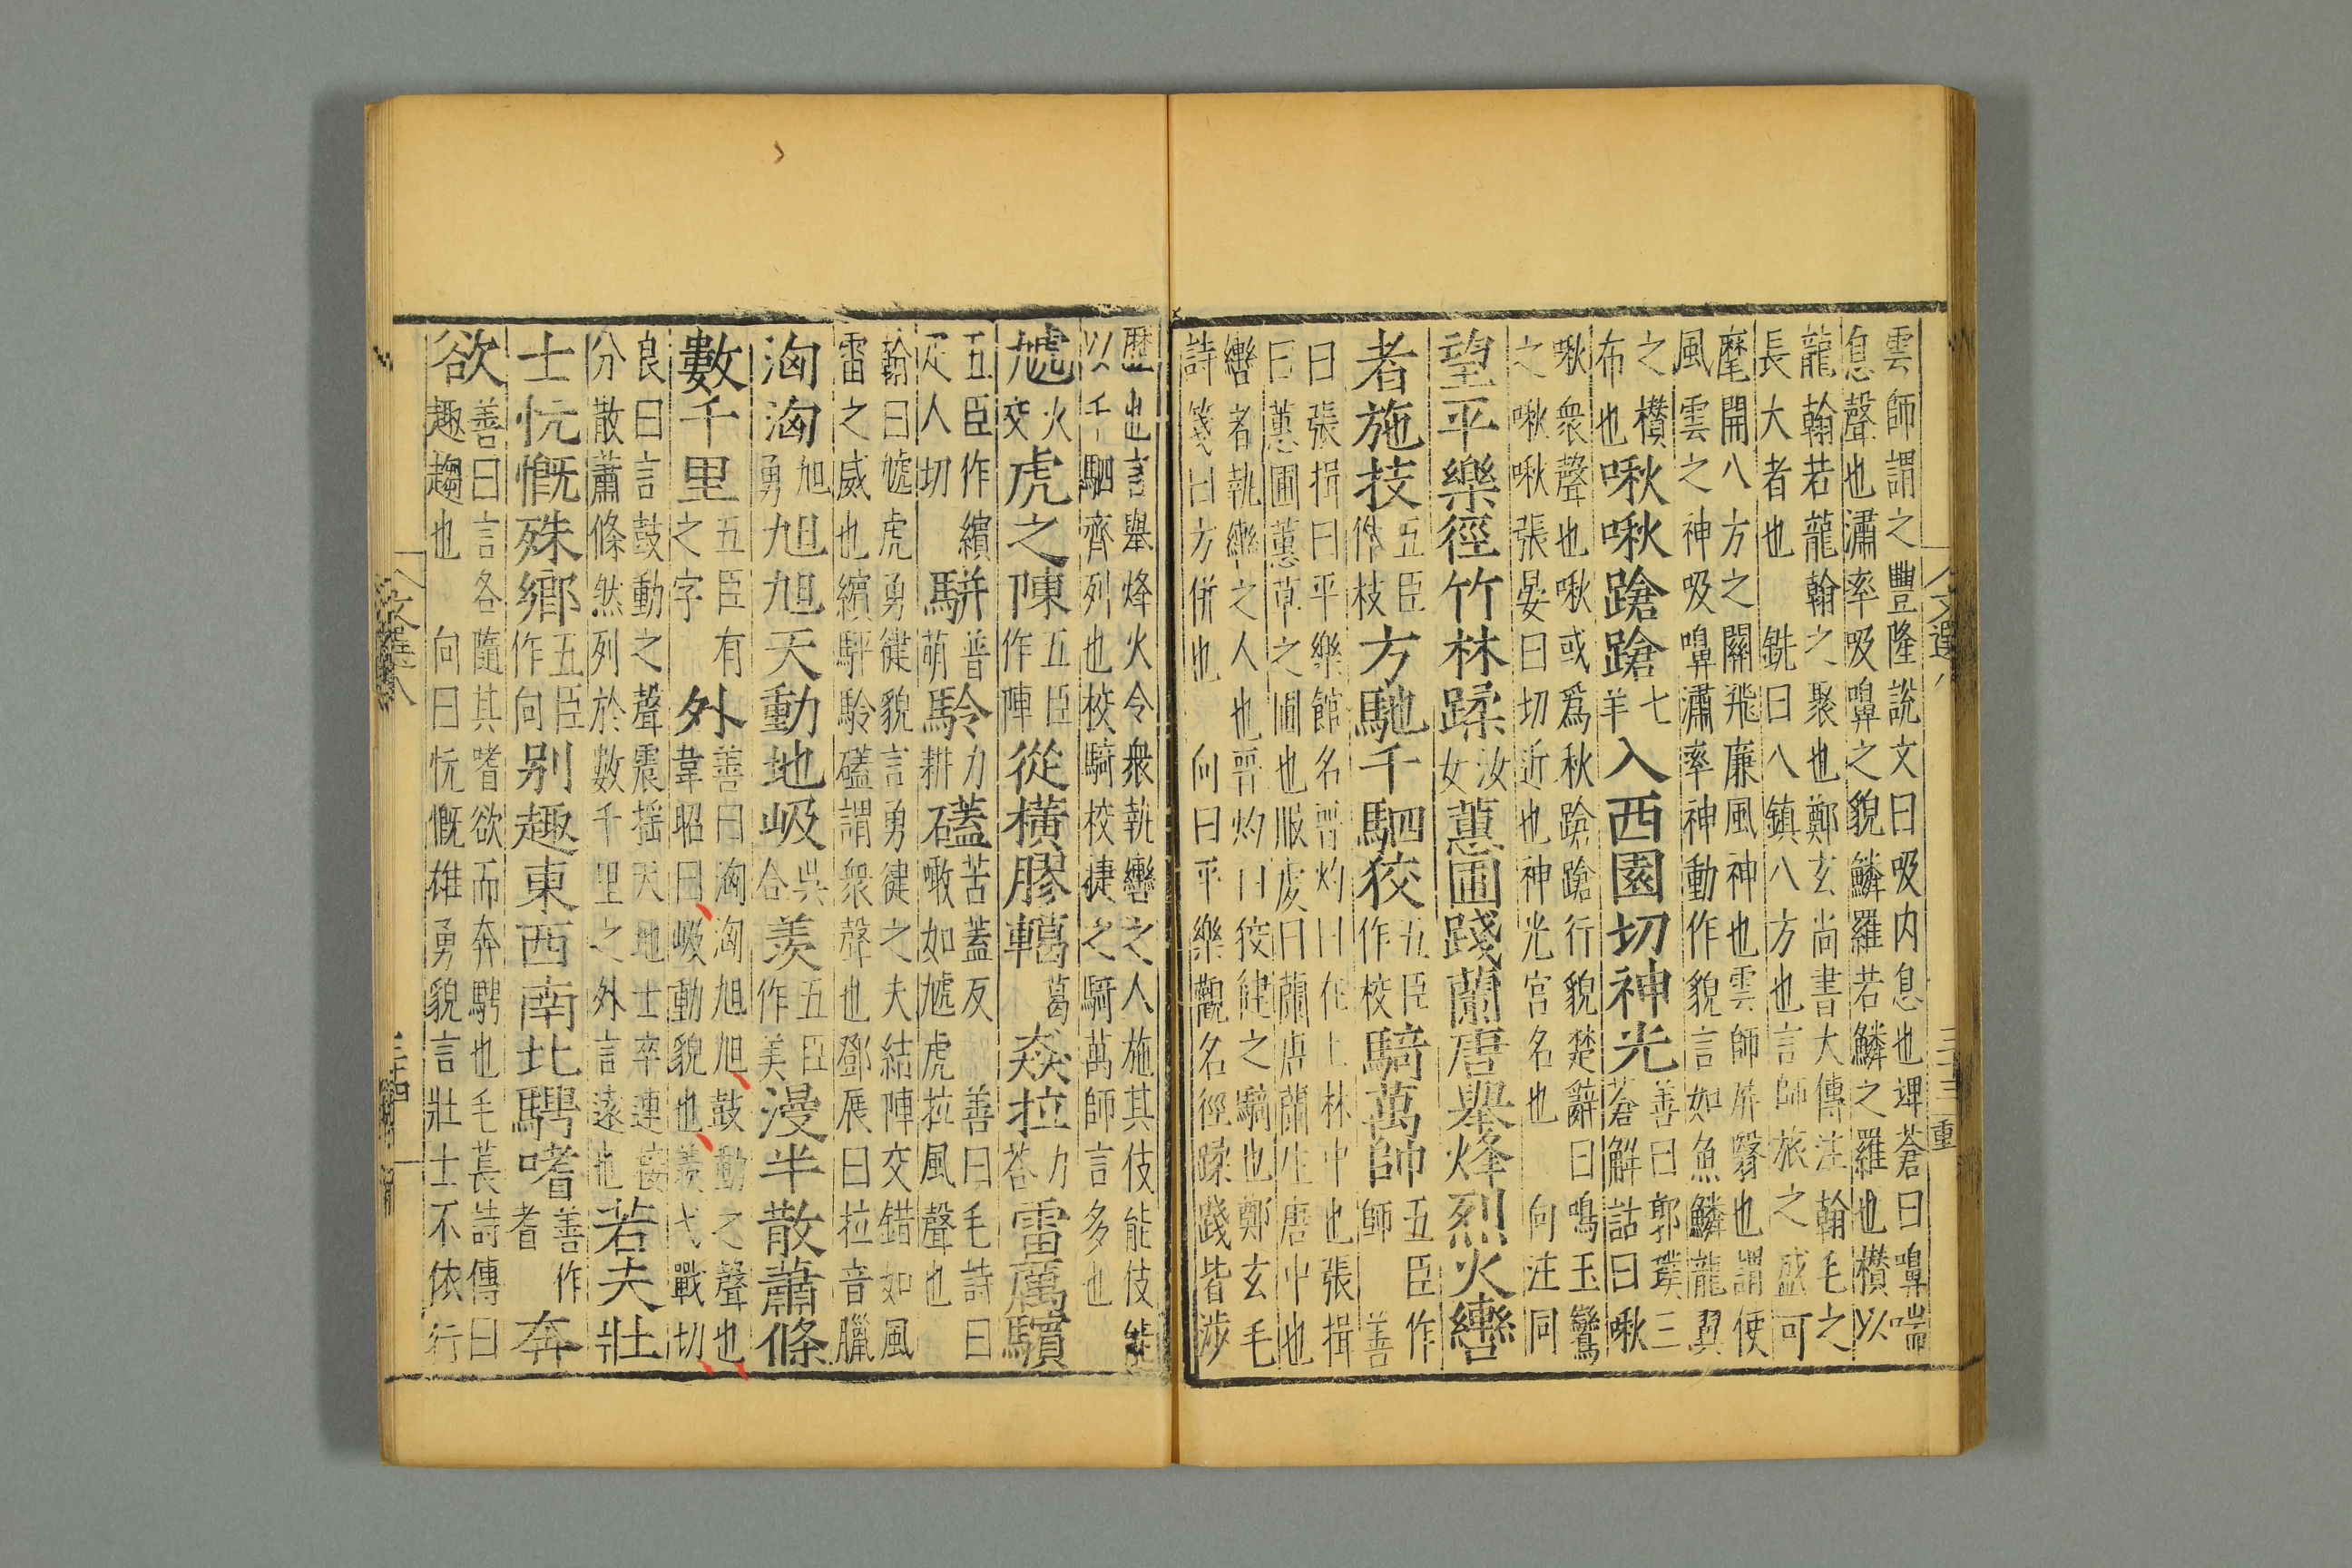 文選八 三十三 重
雲師謂之豐隆說文曰吸内息也埤蒼曰嚊喘
息聲也潚率吸嚊之貌鱗羅若鱗之羅也攢以
龍翰若龍翰之聚也鄭玄尚書大傳注翰毛之
長大者也 銑曰八鎮八方也言師旅之盛可
麾開八方之關飛廉風神也雲師屏翳也謂使
風雲之神吸嚊潚率神動作貌言如魚鱗龍翼
之攢布也啾啾蹌蹌七羊入西園切神光善曰郭璞三蒼解詁曰啾
啾衆聲也啾或爲秋蹌蹌行貌楚辭曰鳴玉鸞
之啾啾張晏曰切近也神光宮名也 向注同
望平樂徑竹林蹂汝女蕙圃踐蘭唐舉烽烈火轡
者施技五臣作枝方馳千駟狡五臣作校騎萬帥五臣作師 善
曰張揖曰平樂館名晋灼曰在上林中也張揖
曰蕙圃蕙草之圃也服虔曰蘭唐蘭生唐中也
轡者執轡之人也晋灼曰狡健之騎也鄭玄毛
詩箋曰方併也 向曰平樂觀名徑蹂踐皆涉
歷也言舉烽火令衆執轡之人施其伎能伎能
以千駟齊列也校騎校捷之騎萬師言多也
虓火交虎之陳五臣作陣從橫膠轕葛猋拉力荅雷厲驞
五臣作繽疋人切駍普萌駖力耕礚苦蓋反 善曰毛詩曰噉如虓虎拉風聲也
翰曰虓虎勇健貌言勇健之夫結陣交錯如風
雷之威也繽駍駖礚謂衆聲也鄧展曰拉音臘
洶洶旭勇旭旭天動地岋吳合羨五臣作美漫半散蕭條
數千里五臣有之字外善曰洶洶旭旭鼓動之聲也韋昭曰岋動貌也羨弋戰切
良曰言鼓動之聲震揺天地士卒連接分散蕭條然列於數千里之外言遠也若夫壯
士忼慨殊鄉五臣作向别趣東西南北騁嗜善作耆奔
欲善曰言各隨其嗜欲而奔騁也毛萇詩傳曰趣趨也 向曰忼慨雄勇貌言壯士不依行
文選八 三十四